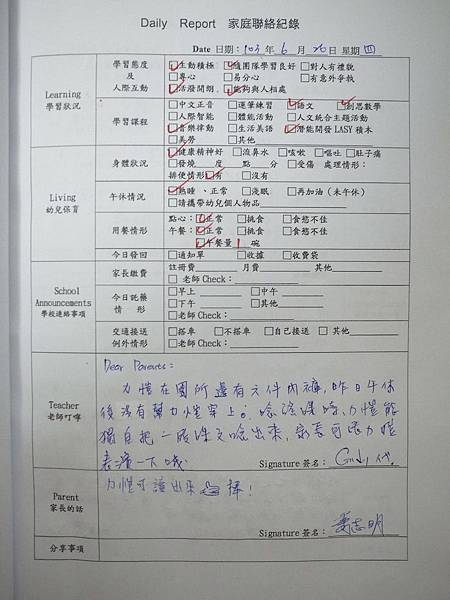 Daily Report 家庭聯絡紀錄
Date 日期：103年 6 月 26 日 星期 四
Learning
學習狀況
學習態度
及
人際互動
☑生動積極 ☑團隊學習良好 □對人有禮貌
□專心 □易分心 □有意外爭執
☑活潑開朗 ☑能夠與人相處
學習課程
□中文正音 □運筆練習 ☑語文 ☑創思數學
□人際智能 □體能活動 □人文統合主題活動
☑音樂律動 □生活美語 ☑潛能開發 LASY 積木
□美勞 □其他
Living
幼兒保育
身體狀況
☑健康精神好 □流鼻水 □咳嗽 □嘔吐 □肚子痛
□發燒 度 點 分 □受傷 處理情形：
排便情形☑有 □沒有
午休情況
☑熟睡、正常 □淺眠 □再加油（未午休）
□請攜帶幼兒個人物品
用餐情形
點心：☑正常 □挑食 □食慾不佳
午餐：☑正常 □挑食 □食慾不佳
☑午餐量 1 碗
今日發回
□通知單 □收據 □收費袋
School
Announcements
學校連絡事項
家長繳費
註冊費 月費 其他
□老師 Check：
今日託藥
情 形
□早上 □中午
□下午 □其他
□老師 Check：
交通接送
例外情形
□搭車 □不搭車 □自己接送 □ 其他
□老師 Check：
Teacher
老師叮嚀
Dear Parents：
力愷在園所還有六件內褲，昨日午休
後沒有幫力愷穿上。唸謠課時，力愷能
獨自把一服課文唸出來，家長可退力愷
表演一下哦
Signature 簽名：
Parent
家長的話
力愷可讀出來 棒！
Signature 簽名： 蕭志明
分享事項